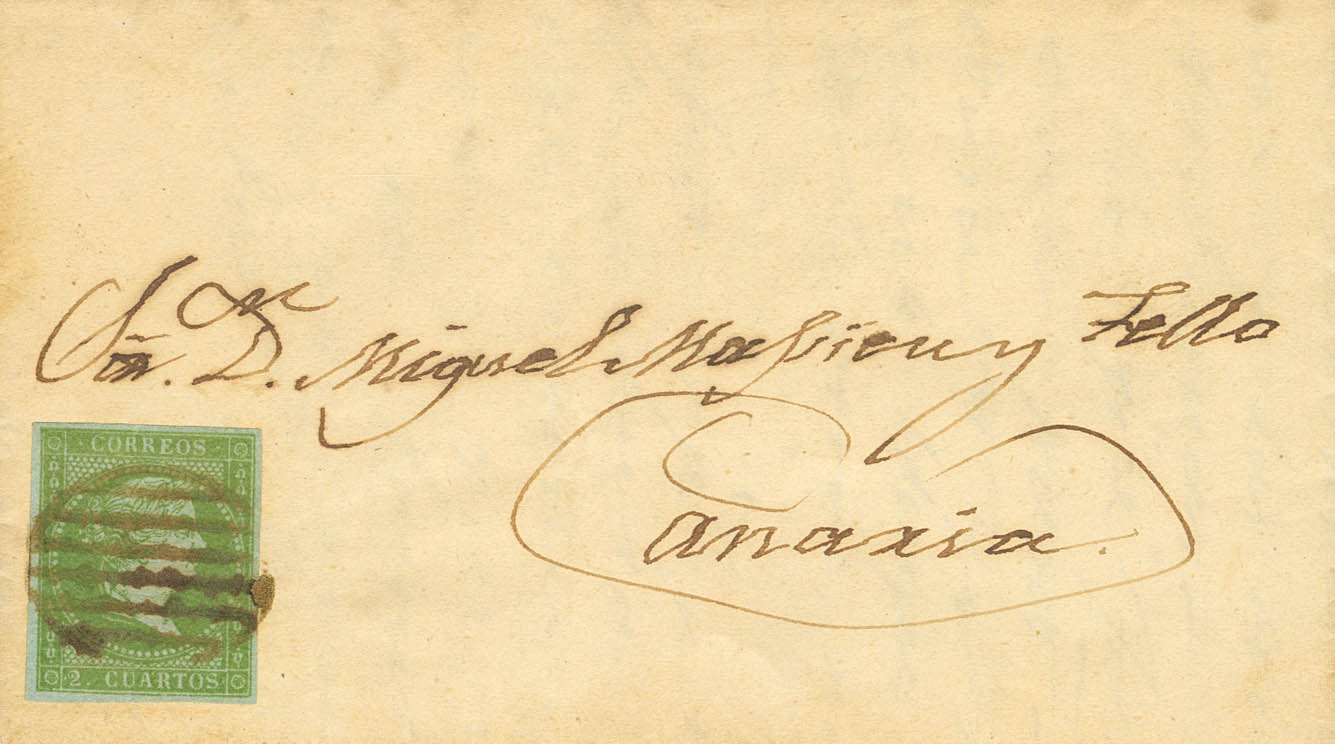 Sr. Dn. D. Miguel Massieu y Tello
Canaria.
CORREOS
2. CUARTOS